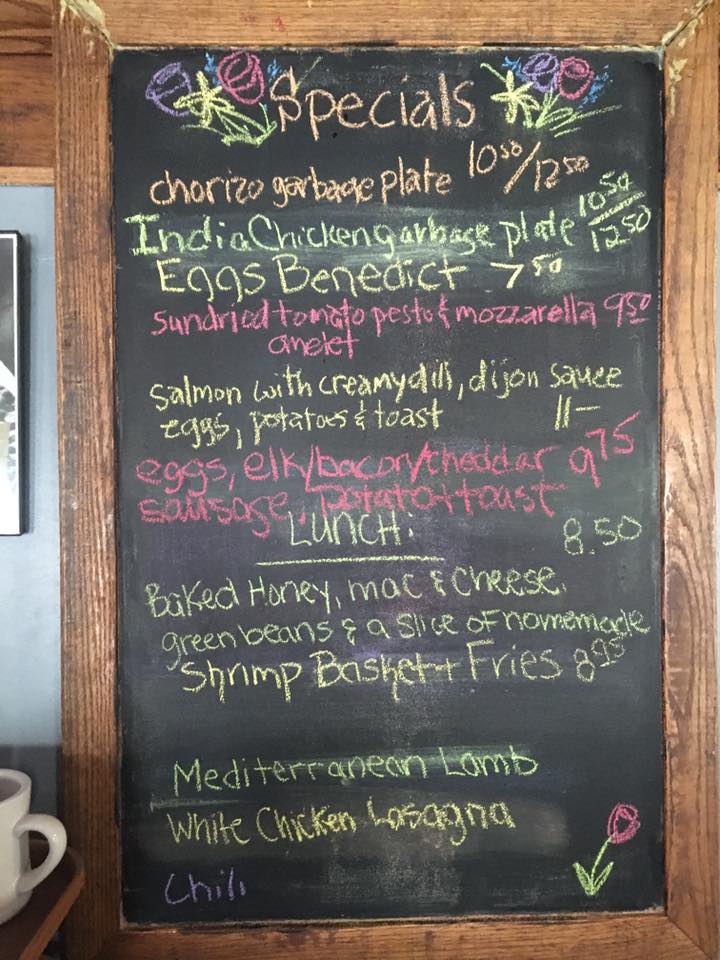 Specials
chorizo garbage plate 10 50/12 50
India Chicken garbage plate 10 50/12 50
Eggs Benedict 7 50
sundried tomato pesto & mozzarella 9 50
omelet
salmon with creamy dill, dijon sauce
eggs, potatoes & toast 11-
eggs, elk/bacon/cheddar 9 75
sausage, potato + toast
LUNCH: 8.50
Baked Honey, mac & cheese,
green beans & a slice of homemade
Shrimp Basket + Fries 8 95
Mediterranean Lamb
White Chicken Lasagna
Chili